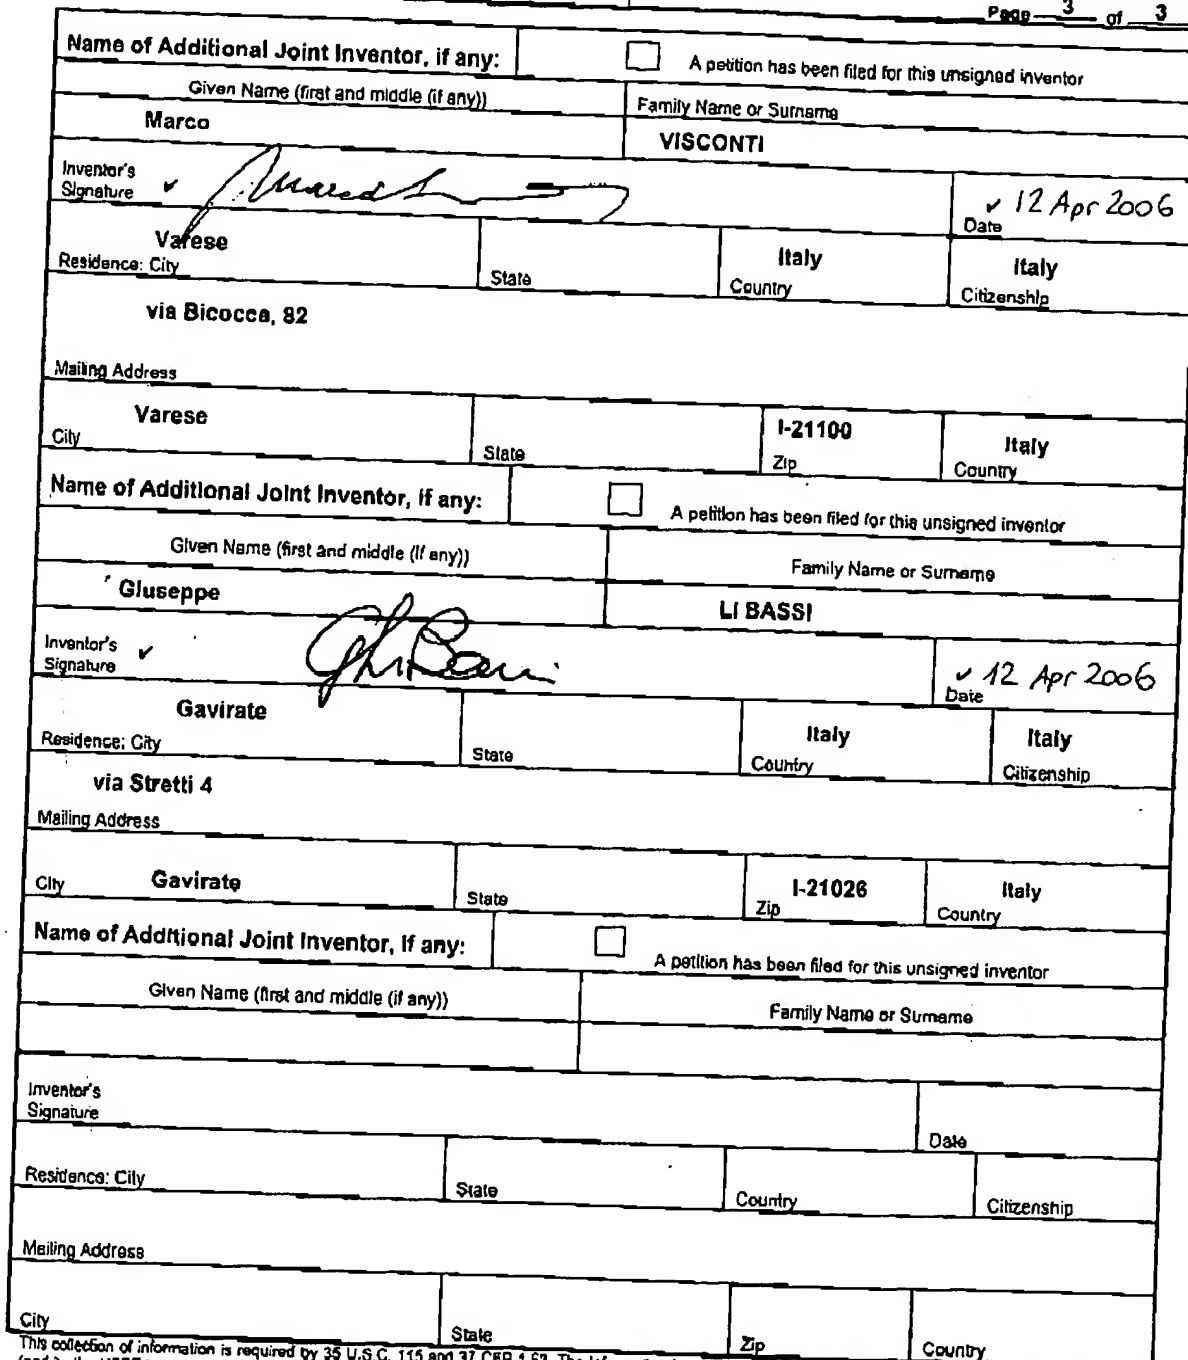 Page 3 of 3
Name of Additional Joint Inventor, if any: A petition has been filed for this unsigned inventor
Given Name (first and middle (if any)) Family Name or Surname
Marco VISCONTI
Inventor's
Signature ✓ ✓ 12 Apr 2006
Date
Varese Italy Italy
Residence: City State Country Citizenship
via Bicocca, 82
Mailing Address
Varese I-21100 Italy
City State Zip Country
Name of Additional Joint Inventor, if any: A petition has been filed for this unsigned inventor
Given Name (first and middle (if any)) Family Name or Surname
Giuseppe LI BASSI
Inventor's
Signature ✓ ✓ 12 Apr 2006
Date
Gavirate Italy Italy
Residence: City State Country Citizenship
via Stretti 4
Mailing Address
City Gavirate State I-21026 Italy
Zip Country
Name of Additional Joint Inventor, if any: A petition has been filed for this unsigned inventor
Given Name (first and middle (if any)) Family Name or Surname
Inventor's
Signature Date
Residence: City State Country Citizenship
Mailing Address
City State Zip Country
This collection of information is required by 35 U.S.C. 115 and 37 CFR 1.63. The